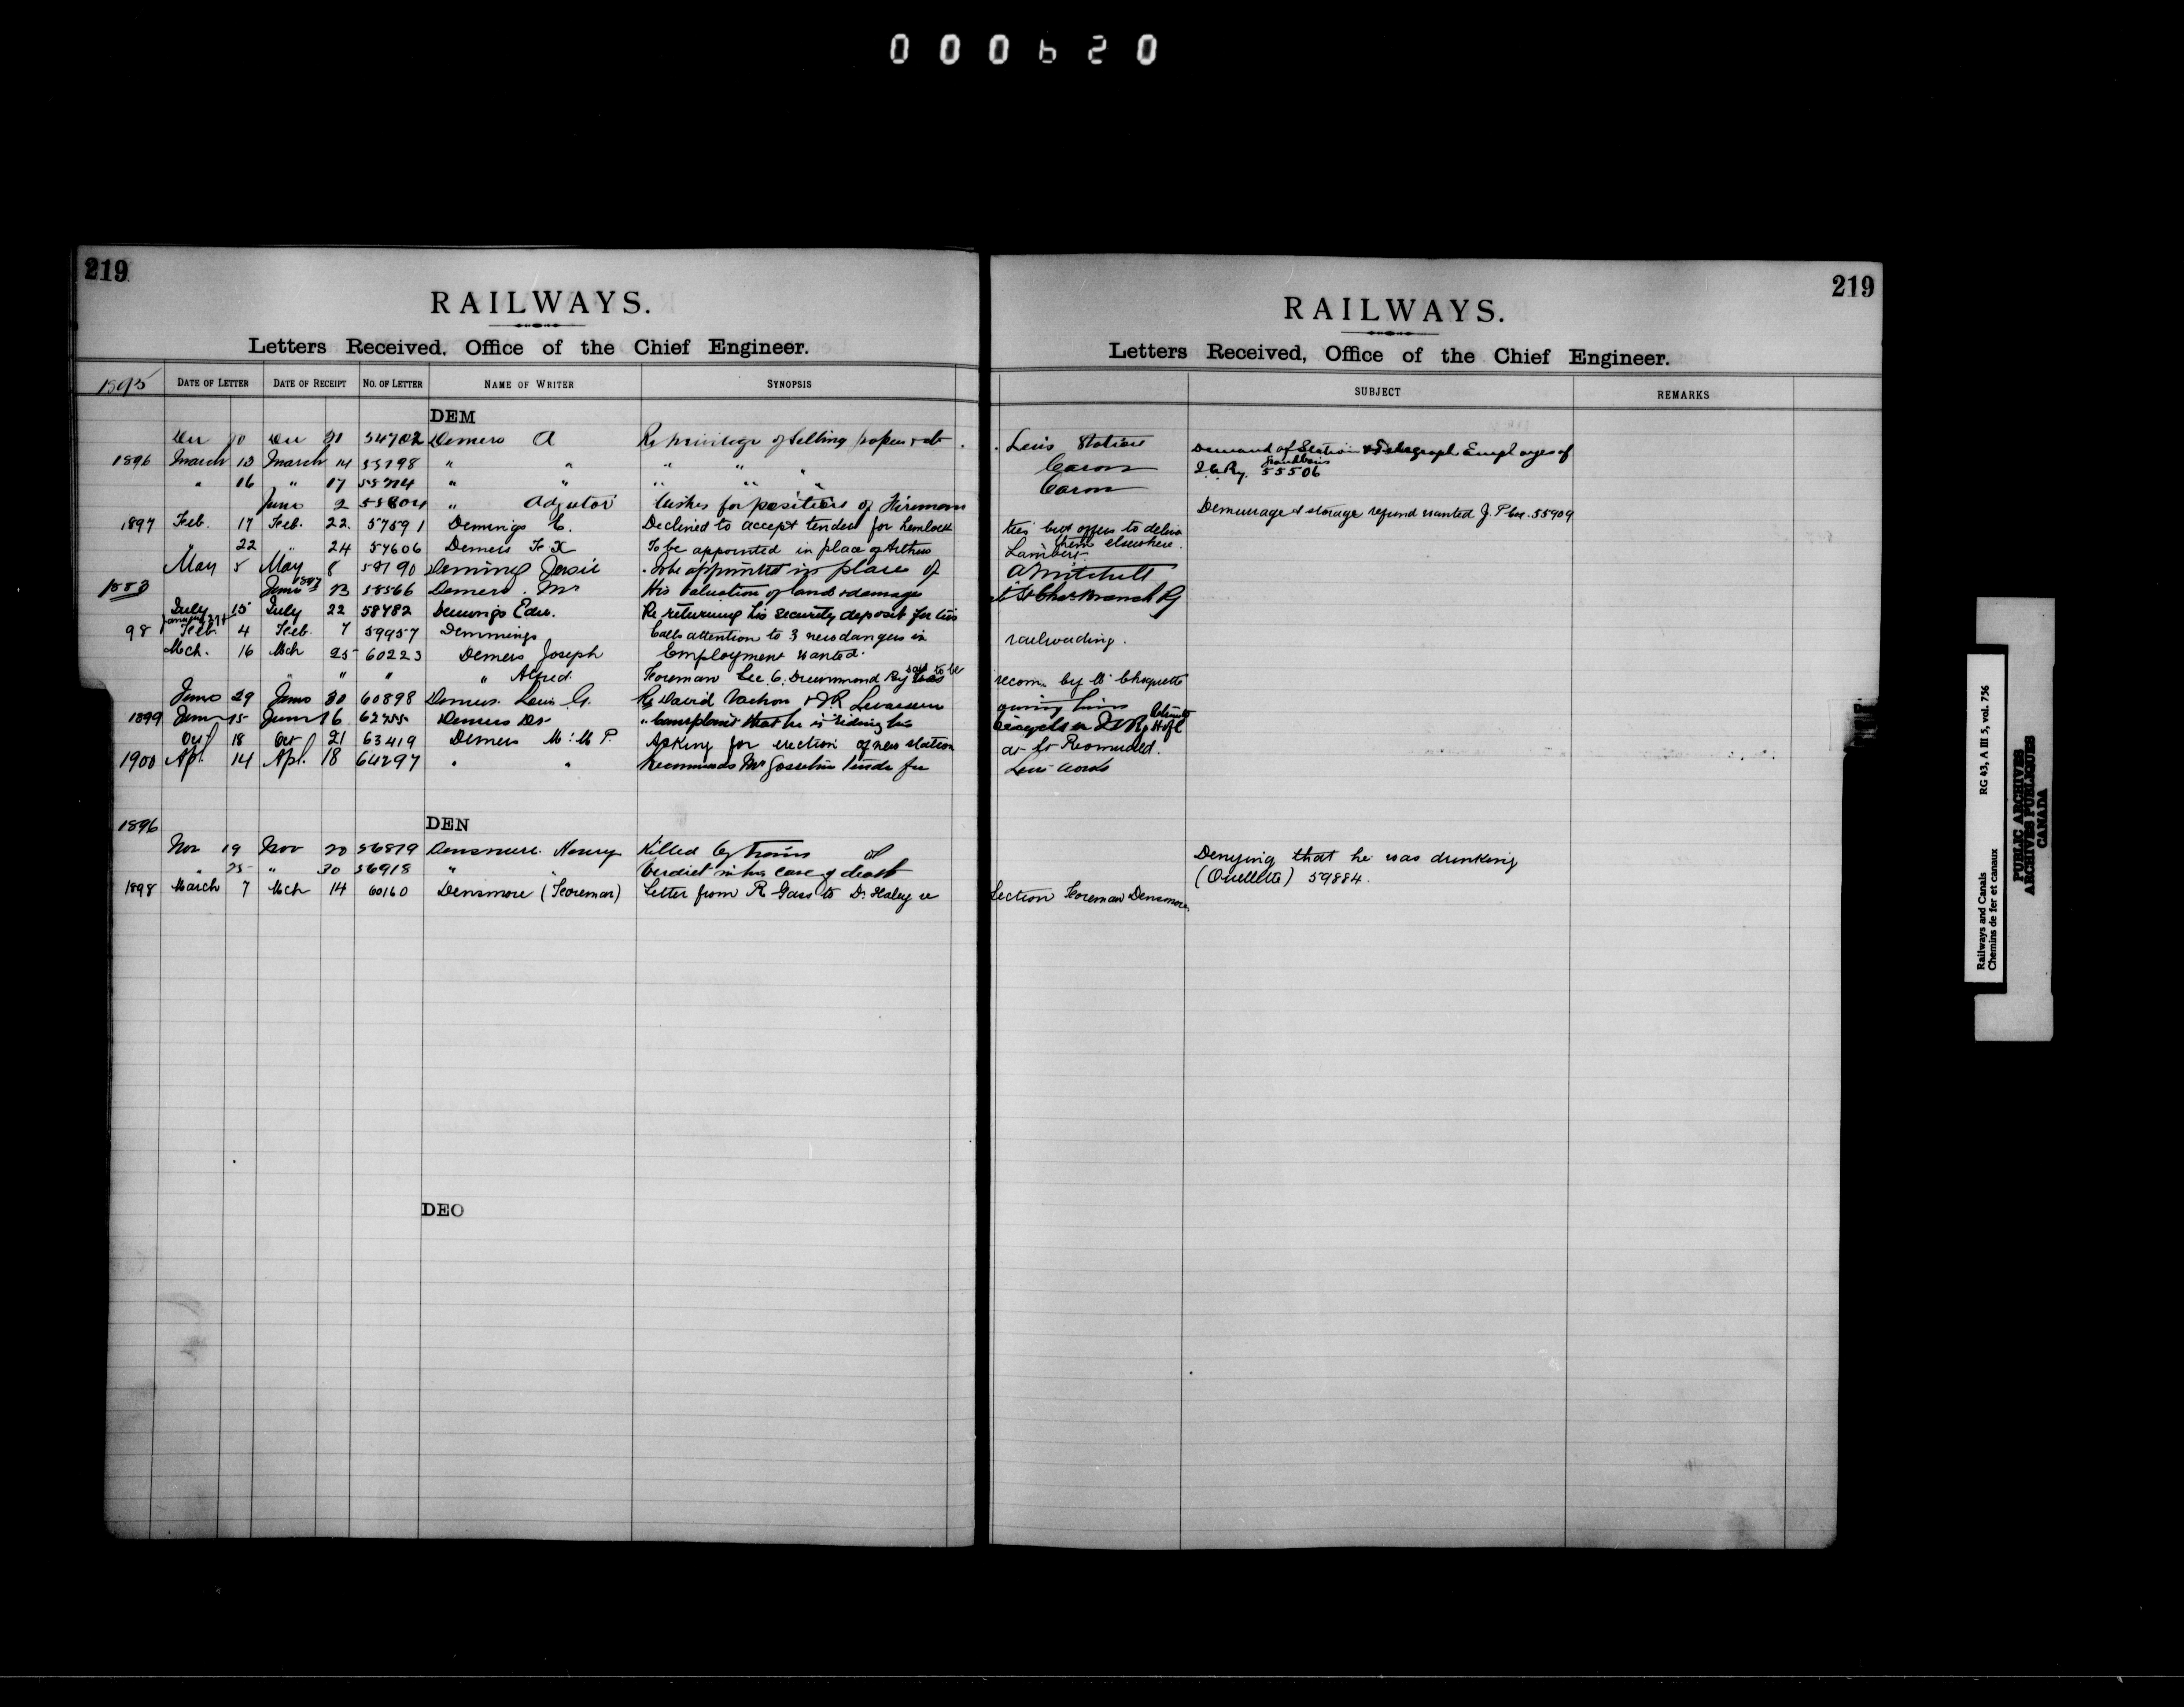 000620
219
RAILWAYS.
Letters Received, Office of the Chief Engineer.
1895 DATE OF LETTER DATE OF RECEIPT No. OF LETTER NAME OF WRITER SYNOPSIS
DEM
54702 Demers A Re privilege of selling papers
1896 March 13 March 14 " " " " "
" 16 " 17 " " " " "
June 2 55804 " Adjutor Wishes for position of Fireman
1897 Feb. 17 Feb. 22 57591 Demings C. Declined to accept tender for hemlock
" 22 " 24 57606 Demers F X To be appointed in place of Arthur
May 5 May 8 58190 Deming To be appointed in place of
1883 June 1897 23 58366 Demers Mr His valuation of land & damages
July 15 July 22 58482 Demings Edw. Re returning his security deposit for ties
98 Feb. 4 Feb. 7 59957 Demmings Calls attention to 3 new dangers in
Mch. 16 Mch 25 60223 Demers Joseph Employment wanted.
" " " " Alfred. Foreman Sec. 6. Drummond Ry said to be
June 29 June 30 60898 Demers Louis G. Re David Vachon & J.R. Levasseur
1899 June 15 June 16 62255 Demers Dr " complaint that he is riding his
Oct 18 Oct 21 63419 Demers M: M P. Asking for erection of new station
1900 Apl. 14 Apl. 18 64297 " " Recommends Mr Gosselin tender for
1896 DEN
Nov 19 Nov 20 56879 Densmore Henry Killed by train
" 25 " 30 56918 " " Verdict in his case of death
1898 March 7 Mch 14 60160 Densmore (Foreman) Letter from R Gass to Dr. Haley re
DEO
219
RAILWAYS.
Letters Received, Office of the Chief Engineer.
SUBJECT REMARKS
Levis Station Demand of Station & Telegraph Employes of
Caron I.C.Ry. 55506
Caron
Demurrage & storage refund wanted J. P 55909
ties but offers to deliver
them elsewhere.
Lambert
A Mitchell
St Chas Branch Ry
railroading.
recom. by Choquette
owing him
bicycle on
at St Romuald.
Levis
Denying that he was drinking
(Ouellette) 59884.
Section Foreman Densmore.
Railways and Canals
Chemins de fer et canaux
RG 43, A III 5, vol. 756
PUBLIC ARCHIVES
ARCHIVES PUBLIQUES
CANADA